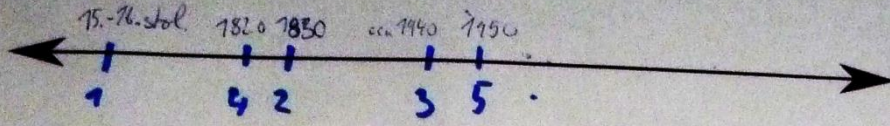 15.-16. stol. 1820 1830 cca 1940 1950
1 4 2 3 5